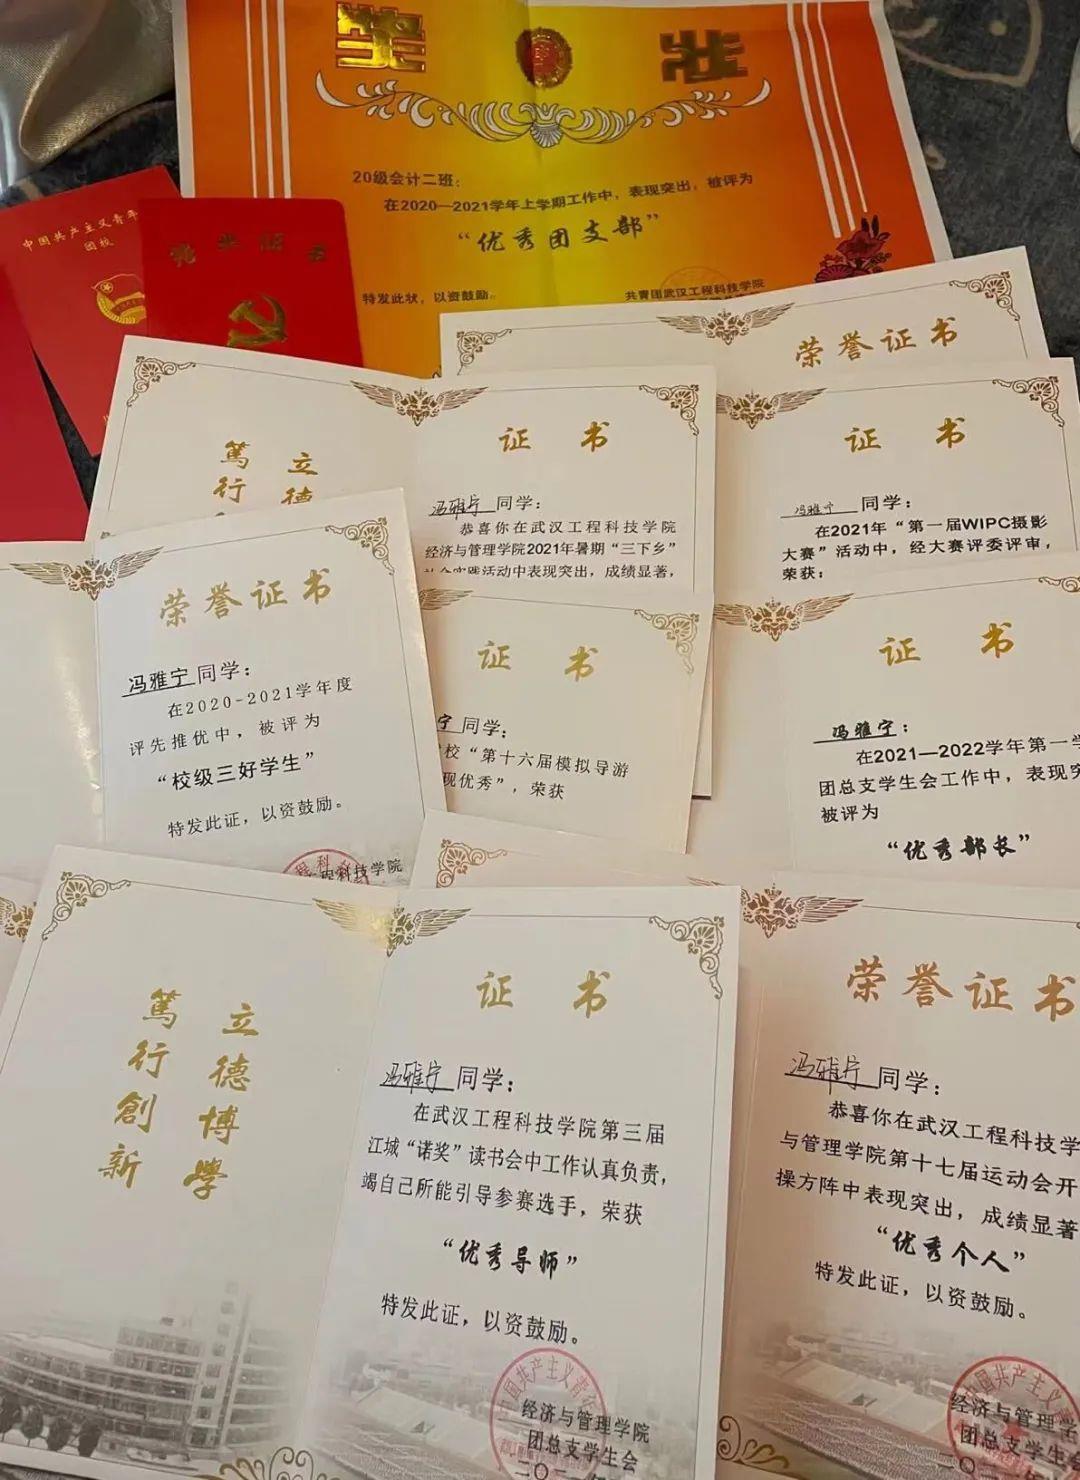 奖 状
20级会计二班：
在2020—2021学年上学期工作中，表现突出，被评为
“优秀团支部”
特发此状，以资鼓励。
共青团武汉工程科技学院
中国共产主义青年
团校
荣誉证书
笃 立
行 德
证 书
冯雅宁 同学：
恭喜你在武汉工程科技学院
经济与管理学院2021年暑期“三下乡”
活动中表现突出，成绩显著，
证 书
冯雅宁 同学：
在2021年“第一届WIPC摄影
大赛”活动中，经大赛评委评审，
荣获：
荣誉证书
冯雅宁同学：
在2020-2021学年度
评先推优中，被评为
“校级三好学生”
特发此证，以资鼓励。
程科技学院
证 书
宁 同学：
校“第十六届模拟导游
现优秀”，荣获
证 书
冯雅宁：
在2021—2022学年第一学
团总支学生会工作中，表现突
被评为
“优秀部长”
篤 立
行 德
創 博
新 學
证 书
冯雅宁 同学：
在武汉工程科技学院第三届
江城“诺奖”读书会中工作认真负责，
竭自己所能引导参赛选手，荣获
“优秀导师”
特发此证，以资鼓励。
中国共产主义青
经济与管理学院
团总支学生会
二〇二
荣誉证书
冯雅宁 同学：
恭喜你在武汉工程科技学
与管理学院第十七届运动会开
操方阵中表现突出，成绩显著
“优秀个人”
特发此证，以资鼓励。
中国共产主义青
经济与管理学
团总支学生会
二〇二